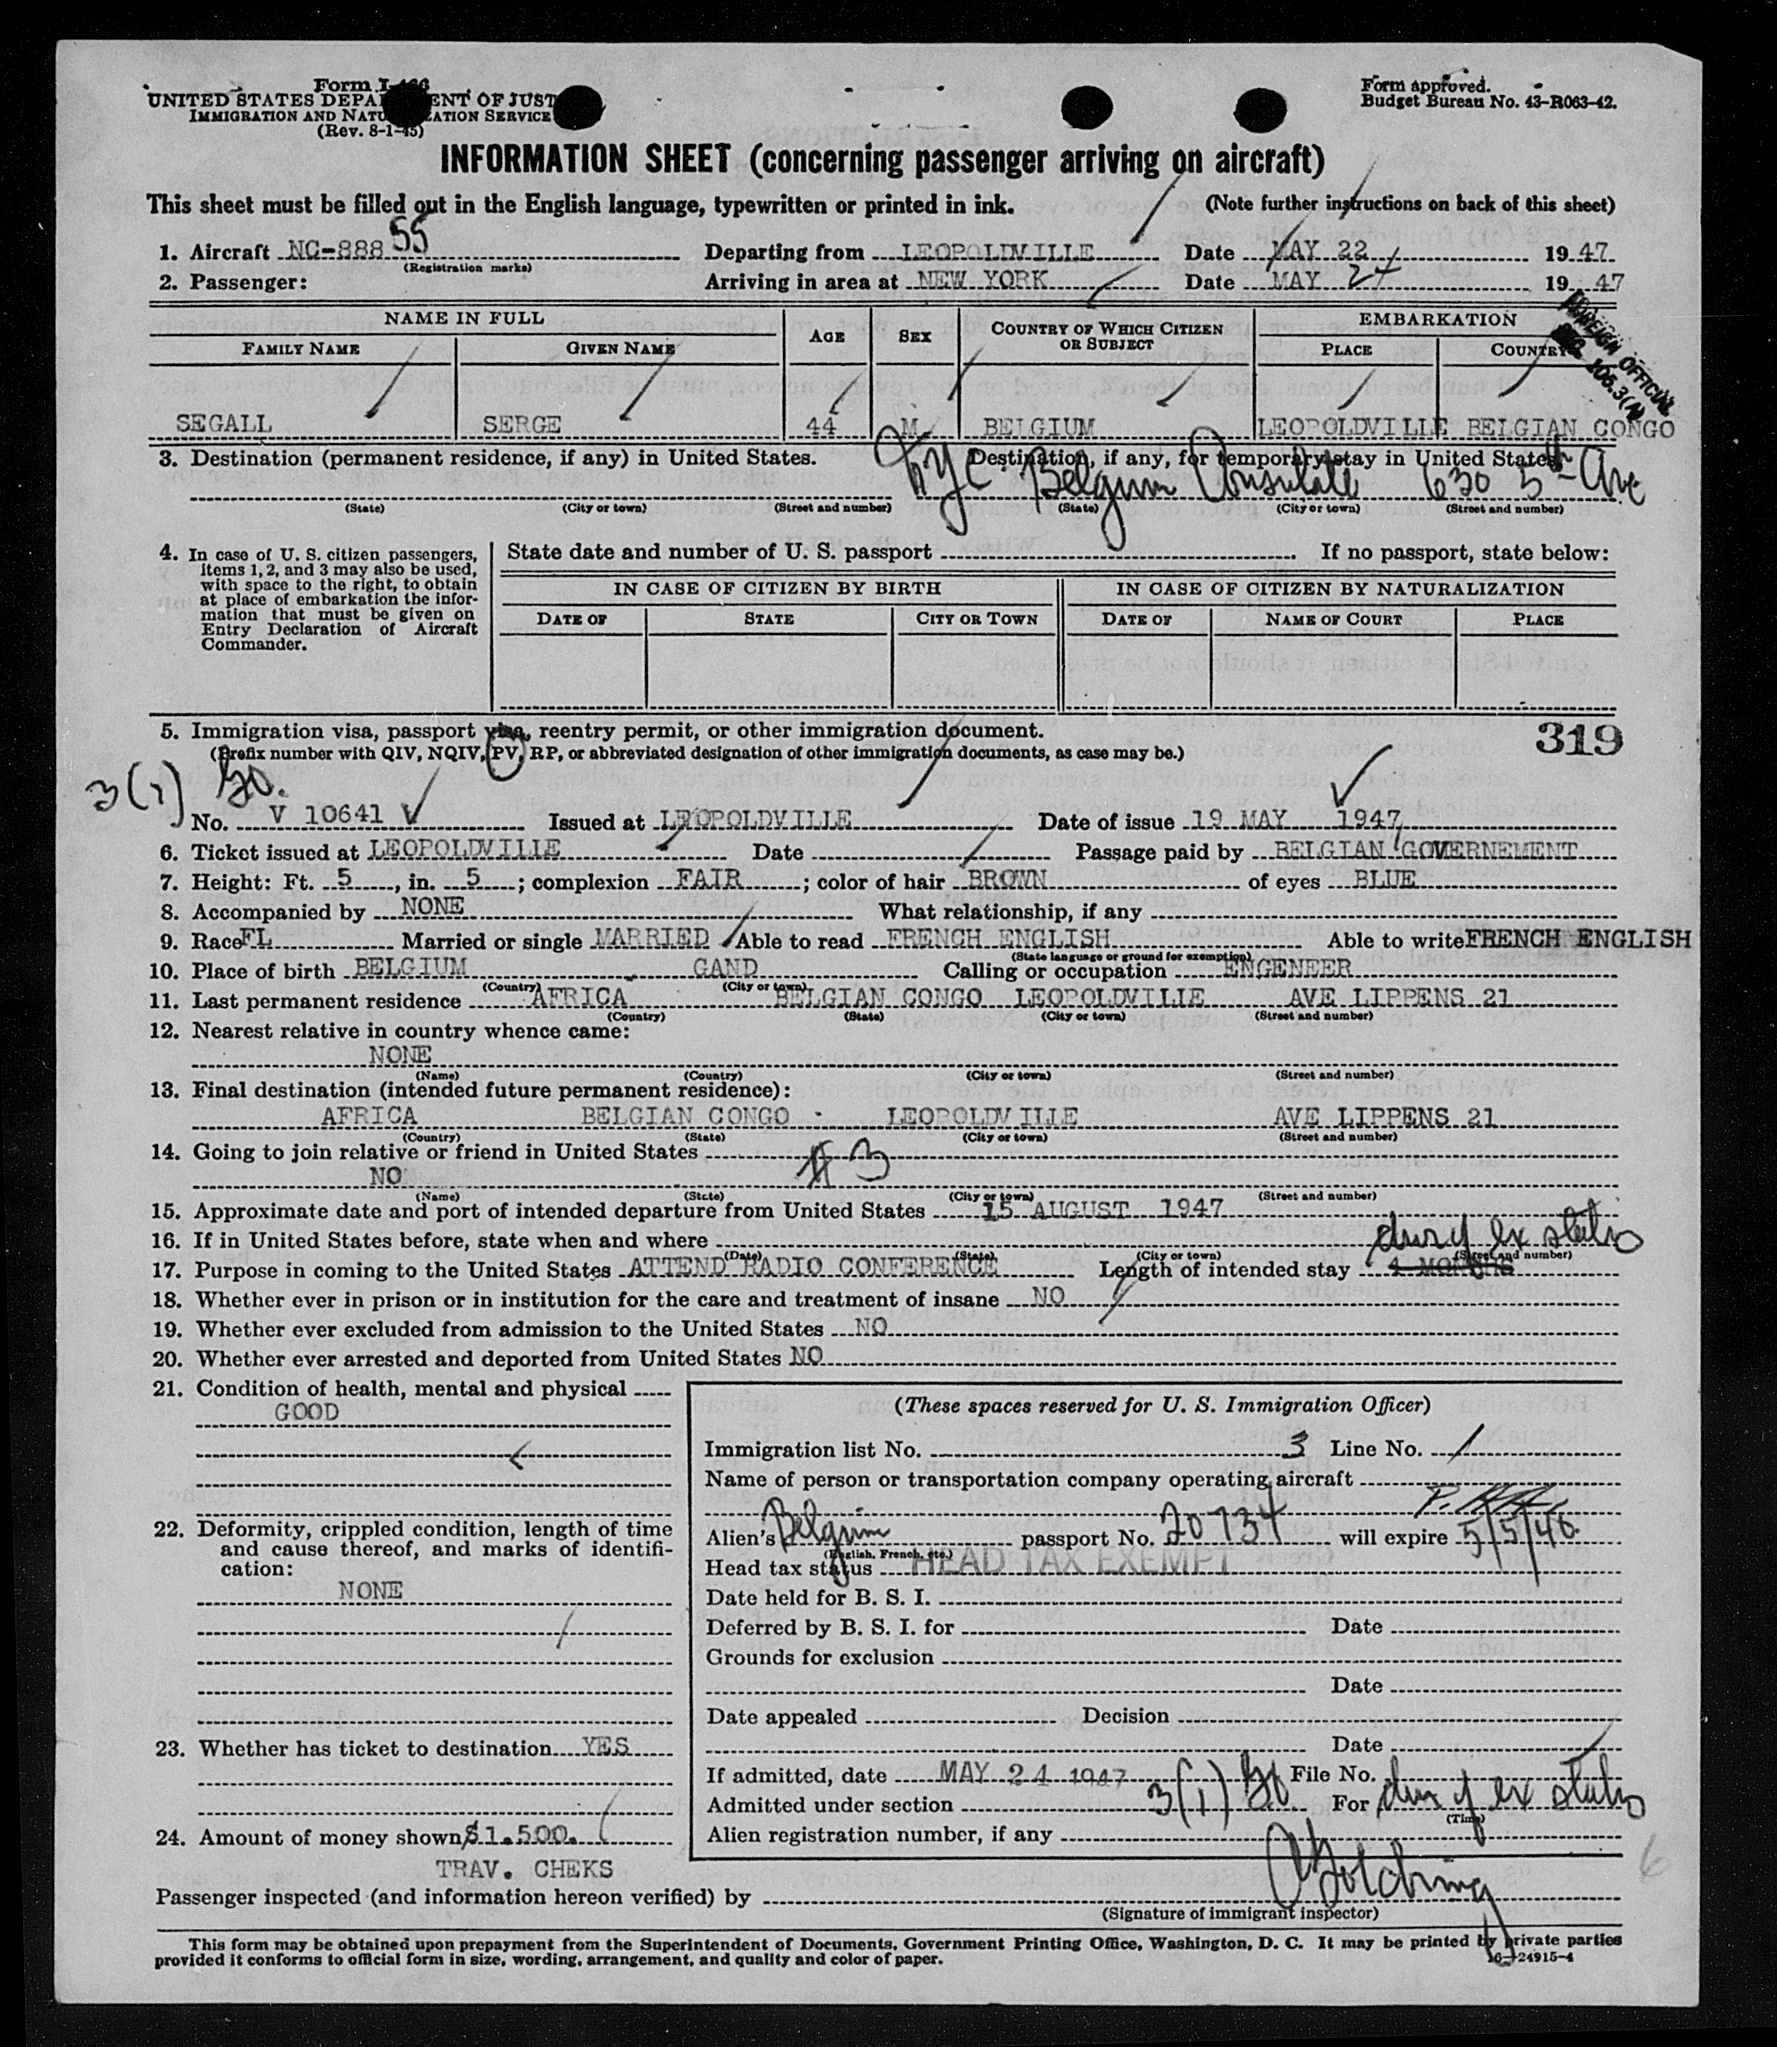 Form I-466
UNITED STATES DEPARTMENT OF JUSTICE
IMMIGRATION AND NATURALIZATION SERVICE
(Rev. 8-1-45)
Form approved.
Budget Bureau No. 43-R063-42.
INFORMATION SHEET (concerning passenger arriving on aircraft)
This sheet must be filled out in the English language, typewritten or printed in ink. (Note further instructions on back of this sheet)
1. Aircraft NC-88855 Departing from LEOPOLDVILLE Date MAY 22 1947
(Registration marks)
2. Passenger: Arriving in area at NEW YORK Date MAY 24 1947
FOREIGN OFFICIAL
SEC. 106.3(A)
NAME IN FULL AGE SEX COUNTRY OF WHICH CITIZEN OR SUBJECT EMBARKATION
FAMILY NAME GIVEN NAME PLACE COUNTRY
SEGALL SERGE 44 M BELGIUM LEOPOLDVILLE BELGIAN CONGO
3. Destination (permanent residence, if any) in United States. Destination, if any, for temporary stay in United States
NYC Belgium Consulate 630 5th Ave
(State) (City or town) (Street and number) (State) (City or town) (Street and number)
4. In case of U. S. citizen passengers, items 1, 2, and 3 may also be used, with space to the right, to obtain at place of embarkation the information that must be given on Entry Declaration of Aircraft Commander.
State date and number of U. S. passport If no passport, state below:
IN CASE OF CITIZEN BY BIRTH IN CASE OF CITIZEN BY NATURALIZATION
DATE OF STATE CITY OR TOWN DATE OF NAME OF COURT PLACE
5. Immigration visa, passport visa, reentry permit, or other immigration document. 319
(Prefix number with QIV, NQIV, PV, RP, or abbreviated designation of other immigration documents, as case may be.)
3(1)
No. V 10641 Issued at LEOPOLDVILLE Date of issue 19 MAY 1947
6. Ticket issued at LEOPOLDVILLE Date Passage paid by BELGIAN GOVERNEMENT
7. Height: Ft. 5, in. 5; complexion FAIR; color of hair BROWN of eyes BLUE
8. Accompanied by NONE What relationship, if any
9. Race FL Married or single MARRIED Able to read FRENCH ENGLISH Able to write FRENCH ENGLISH
(State language or ground for exemption)
10. Place of birth BELGIUM GAND Calling or occupation ENGENEER
(Country) (City or town)
11. Last permanent residence AFRICA BELGIAN CONGO LEOPOLDVILLE AVE LIPPENS 21
(Country) (State) (City or town) (Street and number)
12. Nearest relative in country whence came:
NONE
(Name) (Country) (City or town) (Street and number)
13. Final destination (intended future permanent residence):
AFRICA BELGIAN CONGO LEOPOLDVILLE AVE LIPPENS 21
(Country) (State) (City or town) (Street and number)
14. Going to join relative or friend in United States
NO #3
(Name) (State) (City or town) (Street and number)
15. Approximate date and port of intended departure from United States 15 AUGUST 1947
16. If in United States before, state when and where
(Date) (State) (City or town) (Street and number)
dur of ex status
17. Purpose in coming to the United States ATTEND RADIO CONFERENCE Length of intended stay 4 MONTHS
18. Whether ever in prison or in institution for the care and treatment of insane NO
19. Whether ever excluded from admission to the United States NO
20. Whether ever arrested and deported from United States NO
21. Condition of health, mental and physical
GOOD
22. Deformity, crippled condition, length of time and cause thereof, and marks of identification:
NONE
23. Whether has ticket to destination YES
24. Amount of money shown $1.500.
TRAV. CHEKS
(These spaces reserved for U. S. Immigration Officer)
Immigration list No. 3 Line No. 1
Name of person or transportation company operating aircraft
Alien's Belgium passport No. 20734 will expire 5/5/48
(English, French, etc.)
Head tax status HEAD TAX EXEMPT
Date held for B. S. I.
Deferred by B. S. I. for Date
Grounds for exclusion
Date
Date appealed Decision
Date
If admitted, date MAY 24 1947 File No.
Admitted under section 3(1) For dur of ex status
(Time)
Alien registration number, if any
6
Passenger inspected (and information hereon verified) by
(Signature of immigrant inspector)
This form may be obtained upon prepayment from the Superintendent of Documents, Government Printing Office, Washington, D. C. It may be printed by private parties
provided it conforms to official form in size, wording, arrangement, and quality and color of paper. 16—24915-4